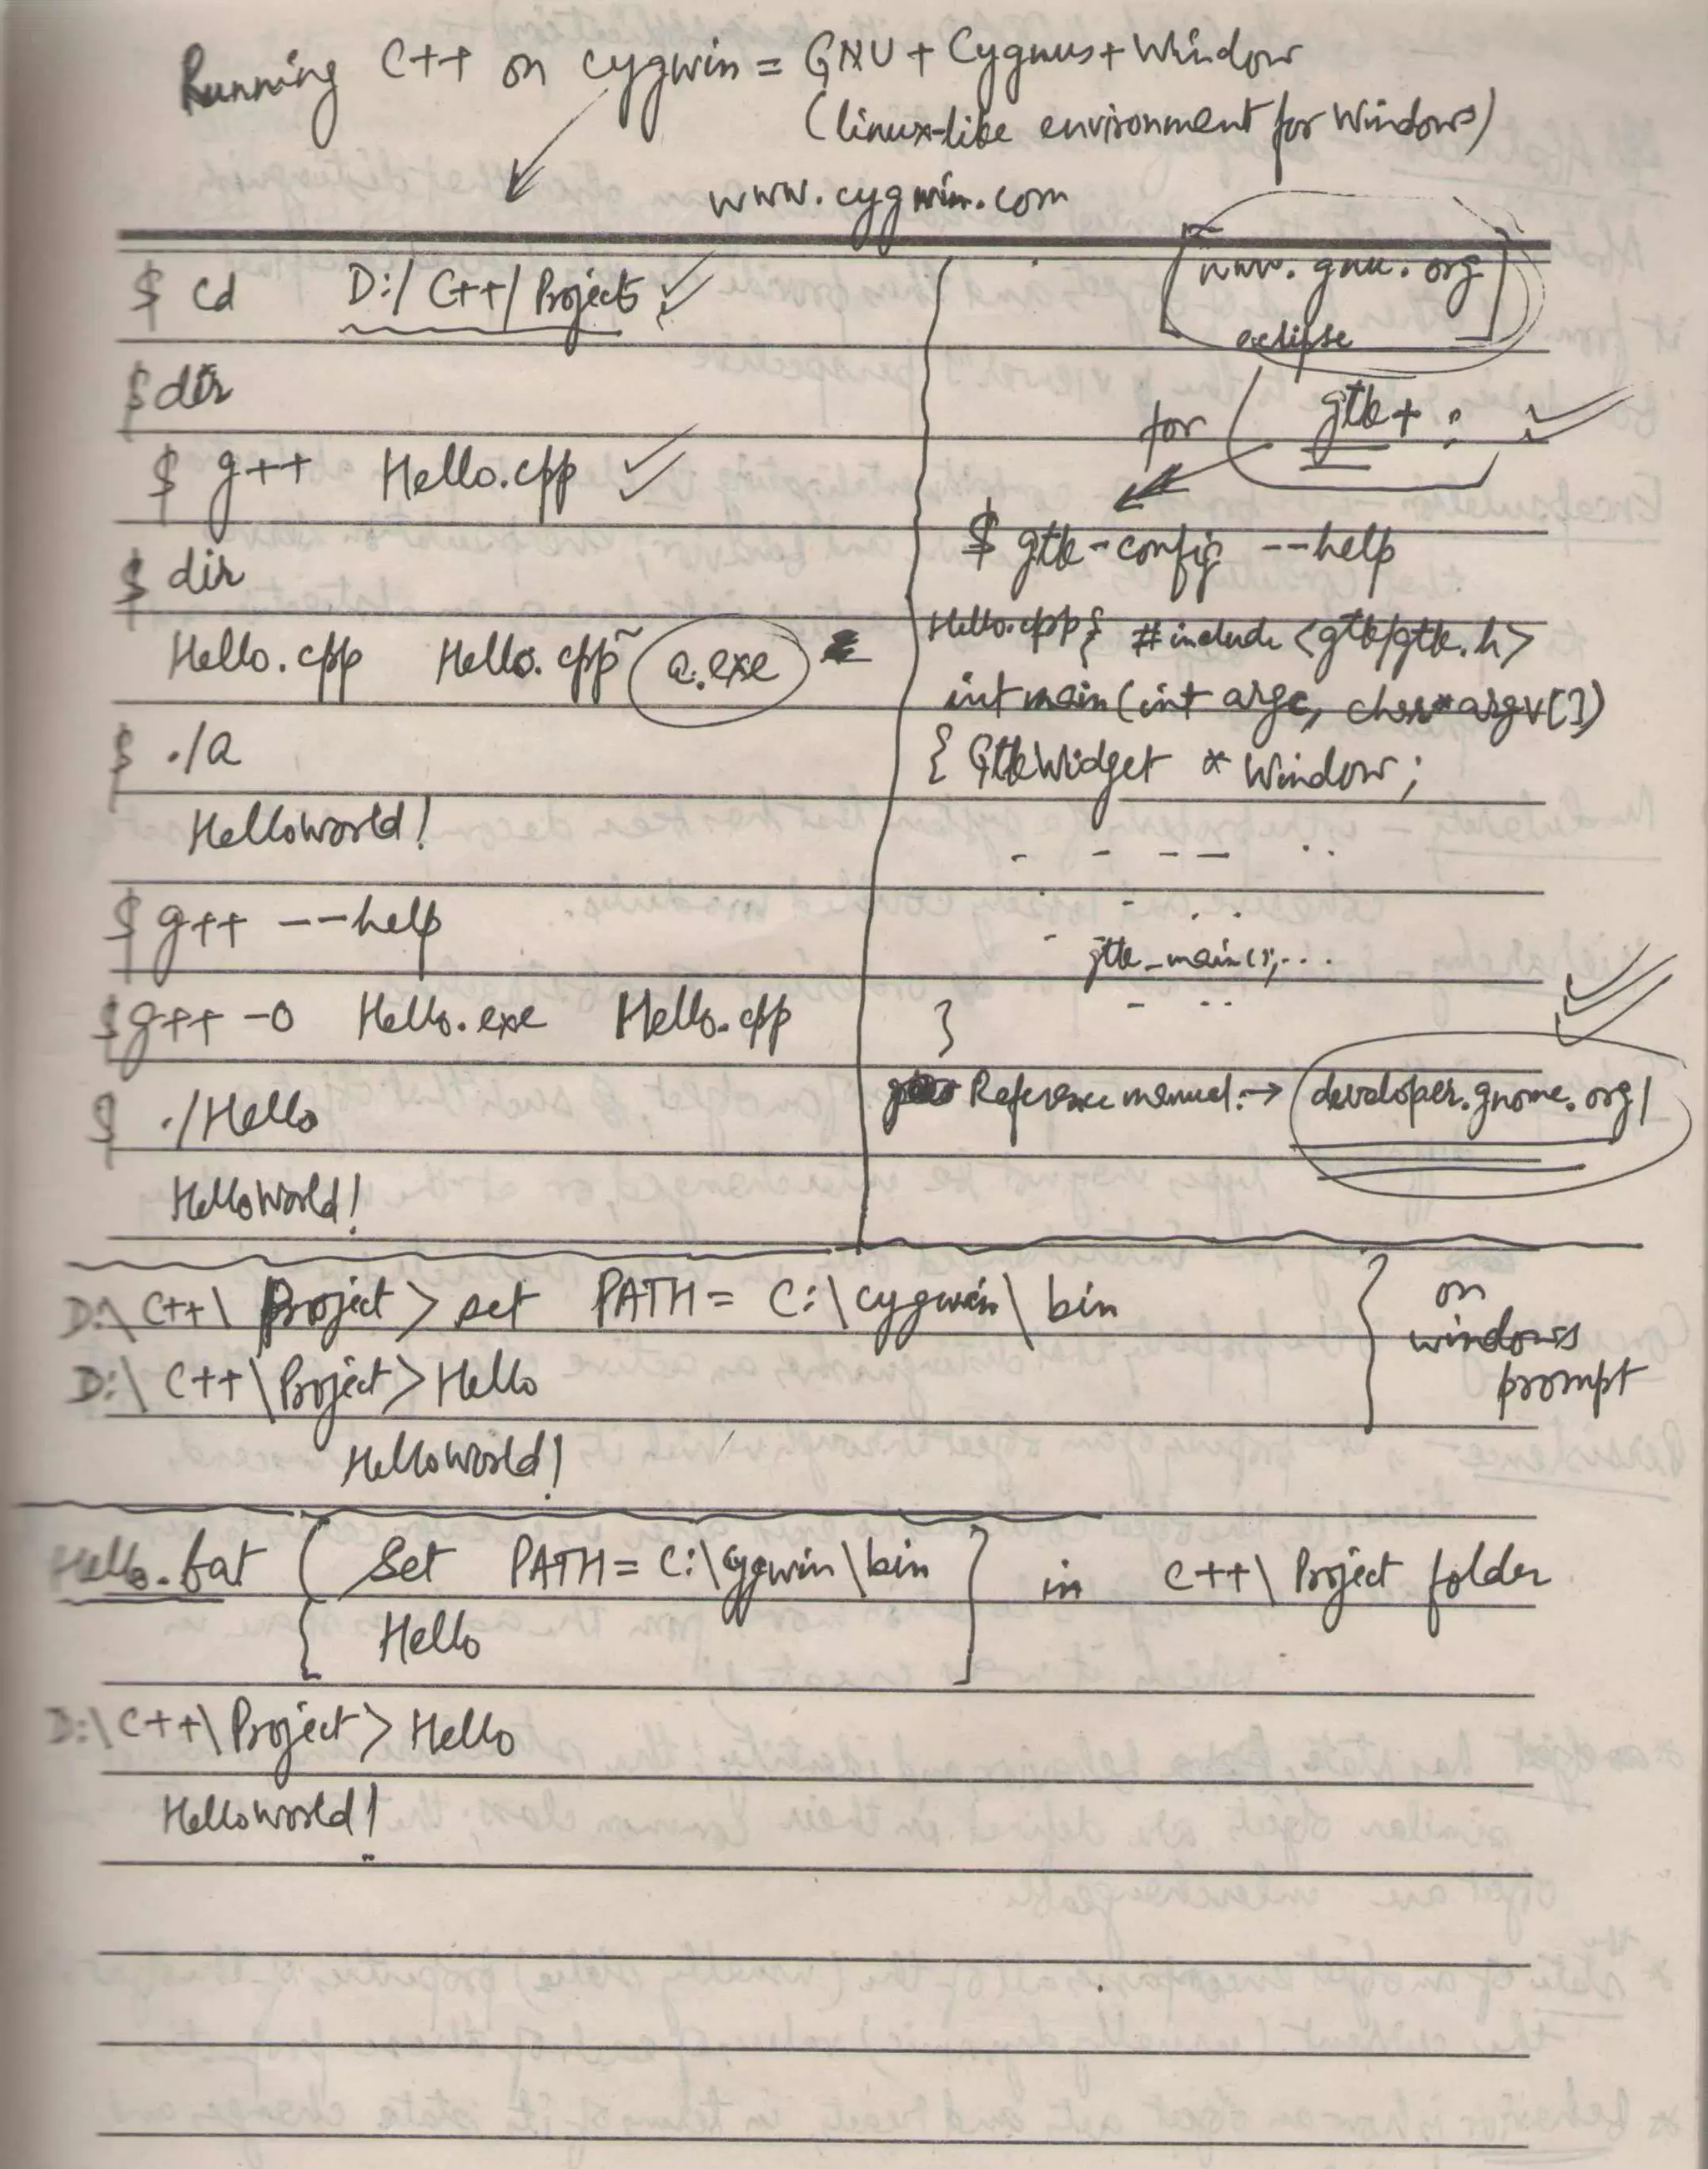 Running C++ on cygwin = GNU + Cygnus + Window
(linux-like environment for Windows)
www.cygwin.com
$ cd D:/C++/Project
$ dir
$ g++ Hello.cpp
$ dir
Hello.cpp Hello.cpp~ a.exe
$ ./a
Helloworld!
$ g++ --help
$ g++ -o Hello.exe Hello.cpp
$ ./Hello
HelloWorld!
www.gnu.org
eclipse
for gtk+ :
$ gtk-config --help
Hello.cpp { #include <gtk/gtk.h>
int main (int argc, char* argv[])
{ GtkWidget * Window;
- - - - . .
- . .
- gtk_main(); ...
- . .
}
Reference manual: → developer.gnome.org/
D:\C++\Project> set PATH = C:\cygwin\bin
D:\C++\Project> Hello
HelloWorld!
} on
windows
prompt
Hello.bat { Set PATH = C:\cygwin\bin } in C++\Project folder
Hello
D:\C++\Project> Hello
HelloWorld!